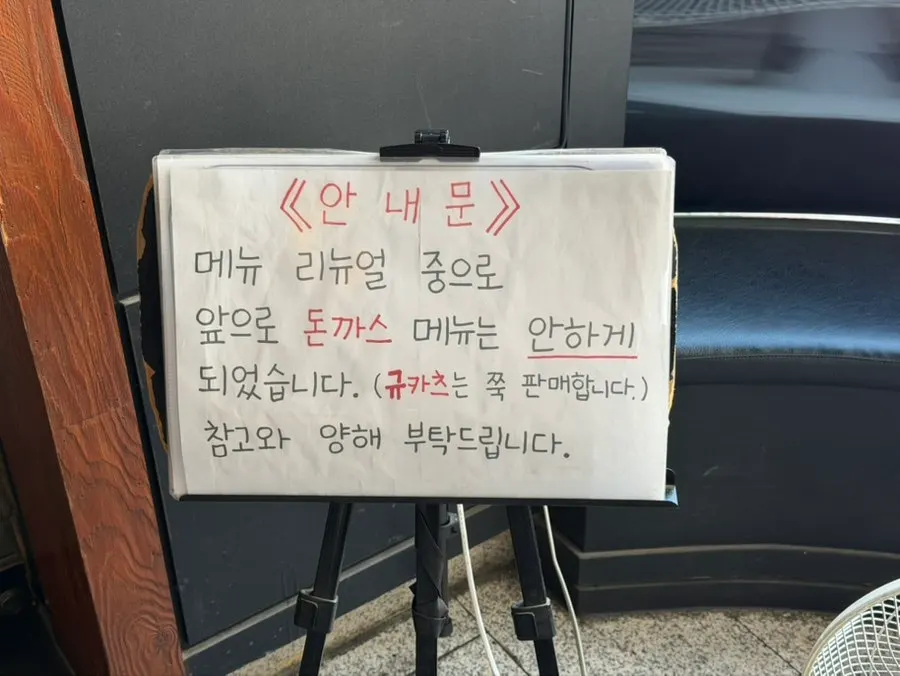 《안내문》
메뉴 리뉴얼 중으로
앞으로 돈까스 메뉴는 안하게
되었습니다. (규카츠는 쭉 판매합니다.)
참고와 양해 부탁드립니다.